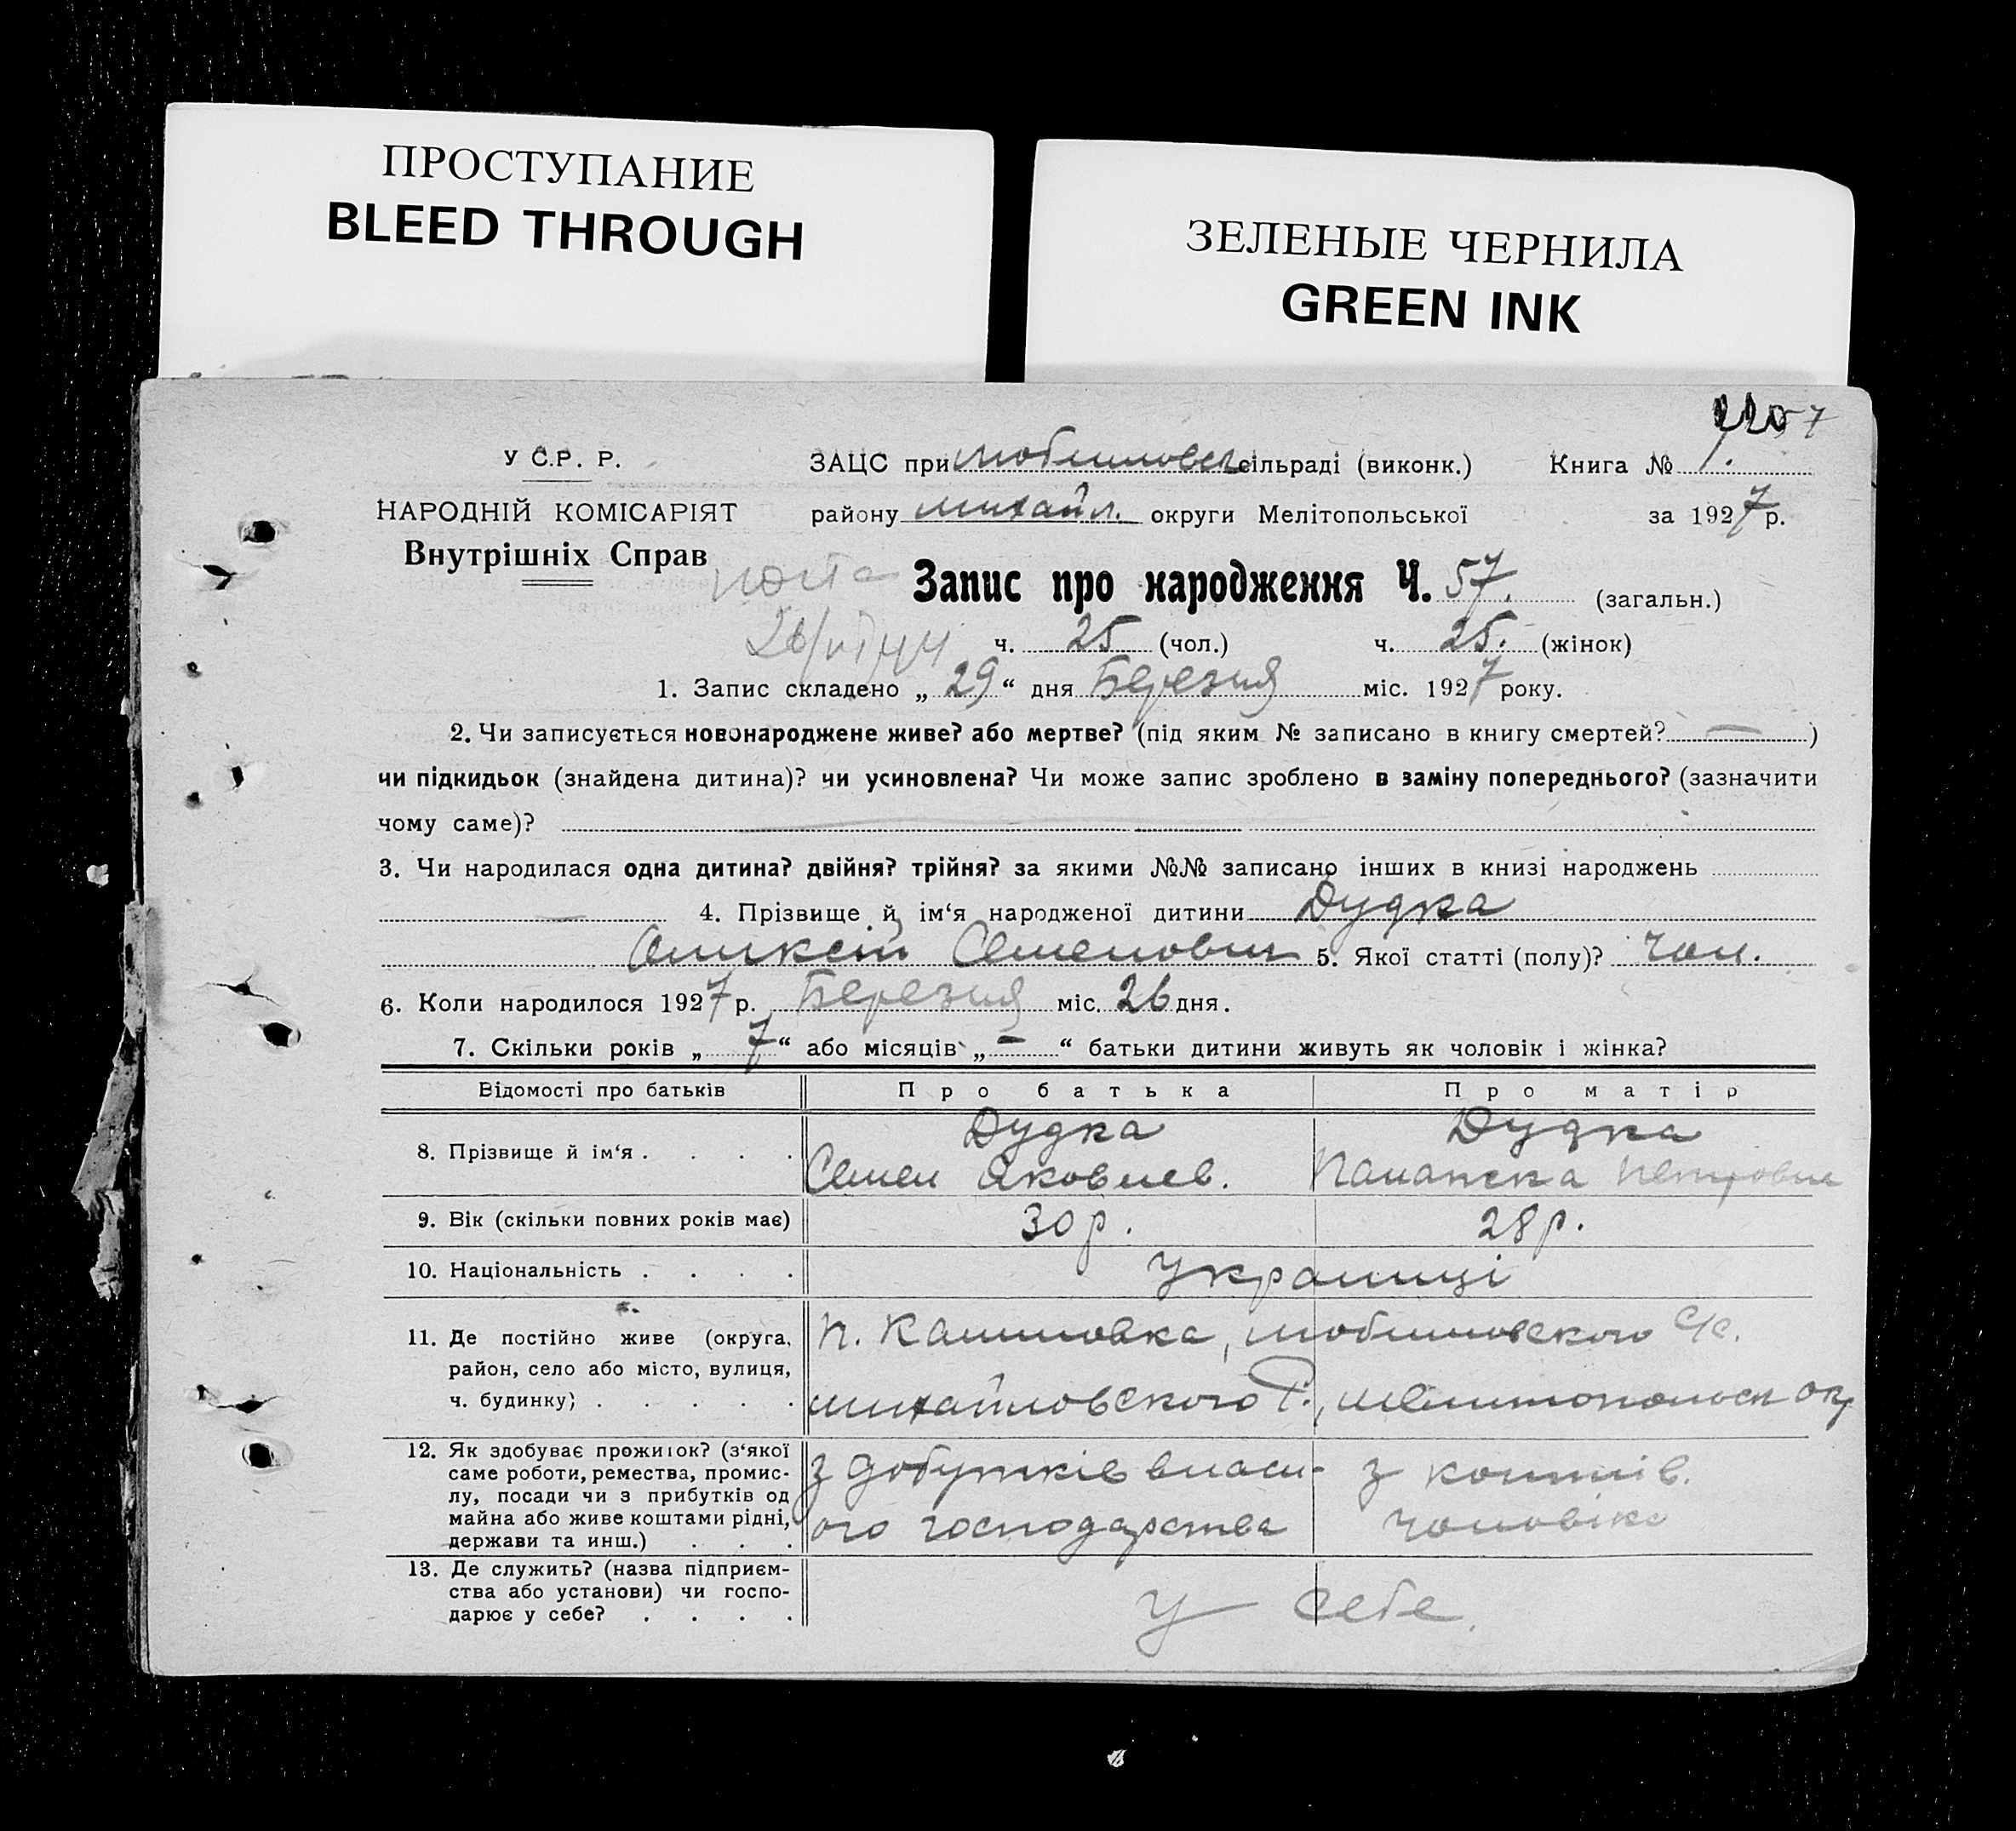 ПРОСТУПАНИЕ
BLEED THROUGH
ЗЕЛЕНЫЕ ЧЕРНИЛА
GREEN INK
У С.Р. Р.
НАРОДНІЙ КОМІСАРІЯТ
Внутрішніх Справ
ЗАЦС при Любимовск сільраді (виконк.) Книга № 1.
району Михайл. округи Мелітопольської за 1927 р.
Запис про народження Ч. 57. (загальн.)
ч. 25 (чол.) ч. 25. (жінок)
1. Запис складено „ 29 “ дня Березня міс. 1927 року.
2. Чи записується новонароджене живе? або мертве? (під яким № записано в книгу смертей? — )
чи підкидьок (знайдена дитина)? чи усиновлена? Чи може запис зроблено в заміну попереднього? (зазначити
чому саме)?
3. Чи народилася одна дитина? двійня? трійня? за якими №№ записано інших в книзі народжень
— 4. Прізвище й ім‘я народженої дитини Дудка
Оликсій Семенович 5. Якої статті (полу)? Чол.
6. Коли народилося 1927 р. Березня міс. 26 дня.
7. Скільки років „ 7 “ або місяців „ — “ батьки дитини живуть як чоловік і жінка?
Відомості про батьків Про батька Про матір
8. Прізвище й ім‘я . . . . Дудка Дудка
Семен Яковлев. Палажка Петровна
9. Вік (скільки повних років має) 30 р. 28 р.
10. Національність . . . . Українці
11. Де постійно живе (округа, район, село або місто, вулиця, ч. будинку) . . . . .
п. Калиновка, Любимовского С/С.
Михайловского Р., Мелитопольск окр
12. Як здобуває прожиток? (з‘якої
саме роботи, ремества, промис-
лу, посади чи з прибутків од
майна або живе коштами рідні,
держави та инш.) . . .
з добутків власн- з коштів.
ого господарства чоловіка
13. Де служить? (назва підприєм-
ства або установи) чи госпо-
дарює у себе? . . . .
У себе.